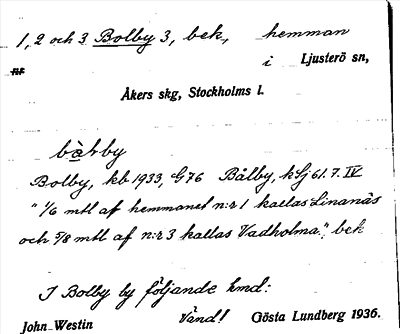 1, 2 och 3 Bolby 3, bek, hemman
nr i Ljusterö sn,
Åkers skg, Stockholms l.
bàlby
Bolby, kb 1933, G76 Bålby, kSj 61. 7. IV
"1/6 mtl af hemmanet n:r 1 kallas Linanäs
och 5/8 mtl af n:r 3 kallas Vadholma", bek
I Bolby by följande hmd:
John Westin Vänd! Gösta Lundberg 1936.